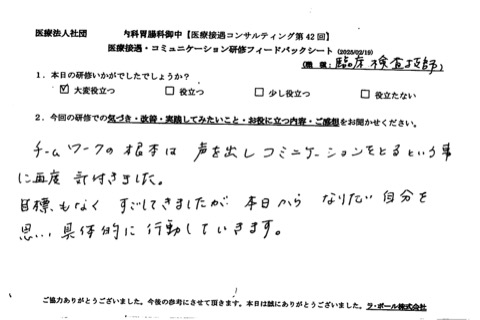 医療法人社団 内科胃腸科御中【医療接遇コンサルティング第42回】
医療接遇・コミュニケーション研修フィードバックシート（2025/02/19）
（職種：臨床検査技師）
1．本日の研修いかがでしたでしょうか？
☑ 大変役立つ □ 役立つ □ 少し役立つ □ 役立たない
2．今回の研修での気づき・改善・実践してみたいこと・お役に立つ内容・ご感想をお聞かせください。
チームワークの根本は 声を出しコミニケーションをとるという事
に再度 気付きました。
目標もなく すごしてきましたが 本日から なりたい自分を
思い 具体的に行動していきます。
ご協力ありがとうございました。今後の参考にさせて頂きます。本日は誠にありがとうございました。ラ・ポール株式会社